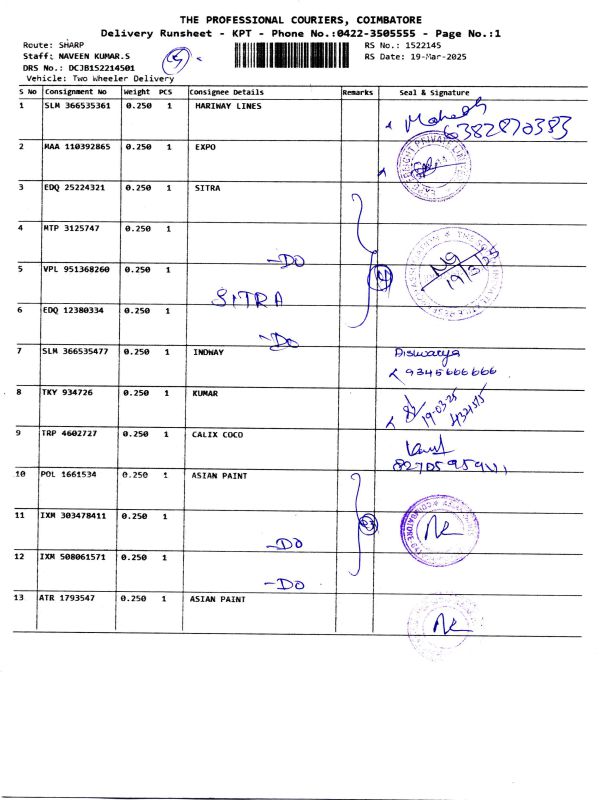 THE PROFESSIONAL COURIERS, COIMBATORE
Delivery Runsheet - KPT - Phone No.:0422-3505555 - Page No.:1
Route: SHARP
RS No.: 1522145
Staff: NAVEEN KUMAR.S
RS Date: 19-Mar-2025
DRS No.: DCJB152214501
Vehicle: Two Wheeler Delivery
S No Consignment No Weight PCS Consignee Details Remarks Seal & Signature
1 SLM 366535361 0.250 1 HARIWAY LINES
Mahesh
6382870383
2 MAA 110392865 0.250 1 EXPO
3 EDQ 25224321 0.250 1 SITRA
4 MTP 3125747 0.250 1
-DO
5 VPL 951368260 0.250 1
SITRA
19/3/25
6 EDQ 12380334 0.250 1
-DO
7 SLM 366535477 0.250 1 INDWAY
Aiswarya
9345666666
8 TKY 934726 0.250 1 KUMAR
19-03-25
9 TRP 4602727 0.250 1 CALIX COCO
10 POL 1661534 0.250 1 ASIAN PAINT
11 IXM 303478411 0.250 1
-DO
12 IXM 508061571 0.250 1
-DO
13 ATR 1793547 0.250 1 ASIAN PAINT